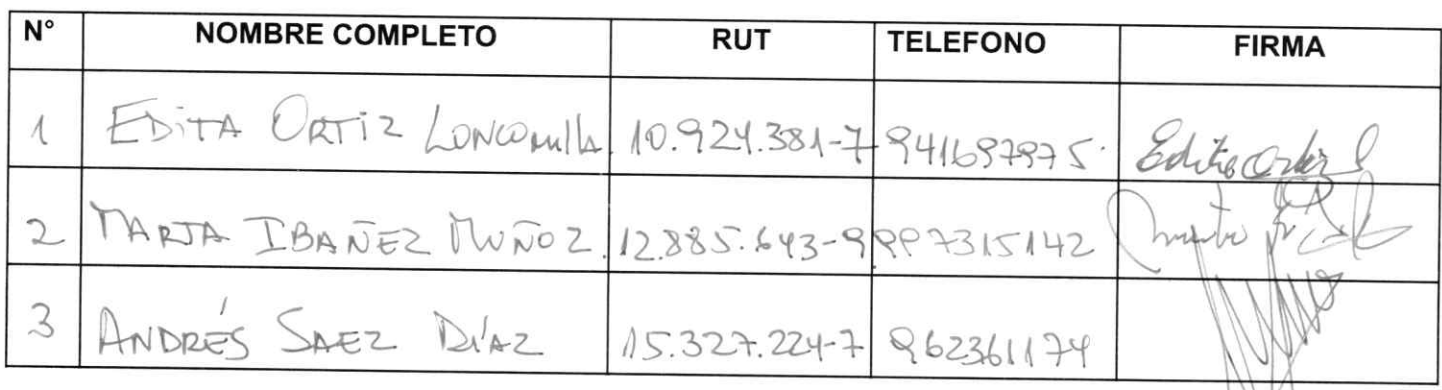 N° NOMBRE COMPLETO RUT TELEFONO FIRMA
1 EDITA ORTIZ LONCOMILLA 10.924.381-7 941697975 Edita Ortiz L
2 MARTA IBAÑEZ MUÑOZ 12.885.643-9 997315142
3 ANDRÉS SAEZ DÍAZ 15.327.224-7 962361174